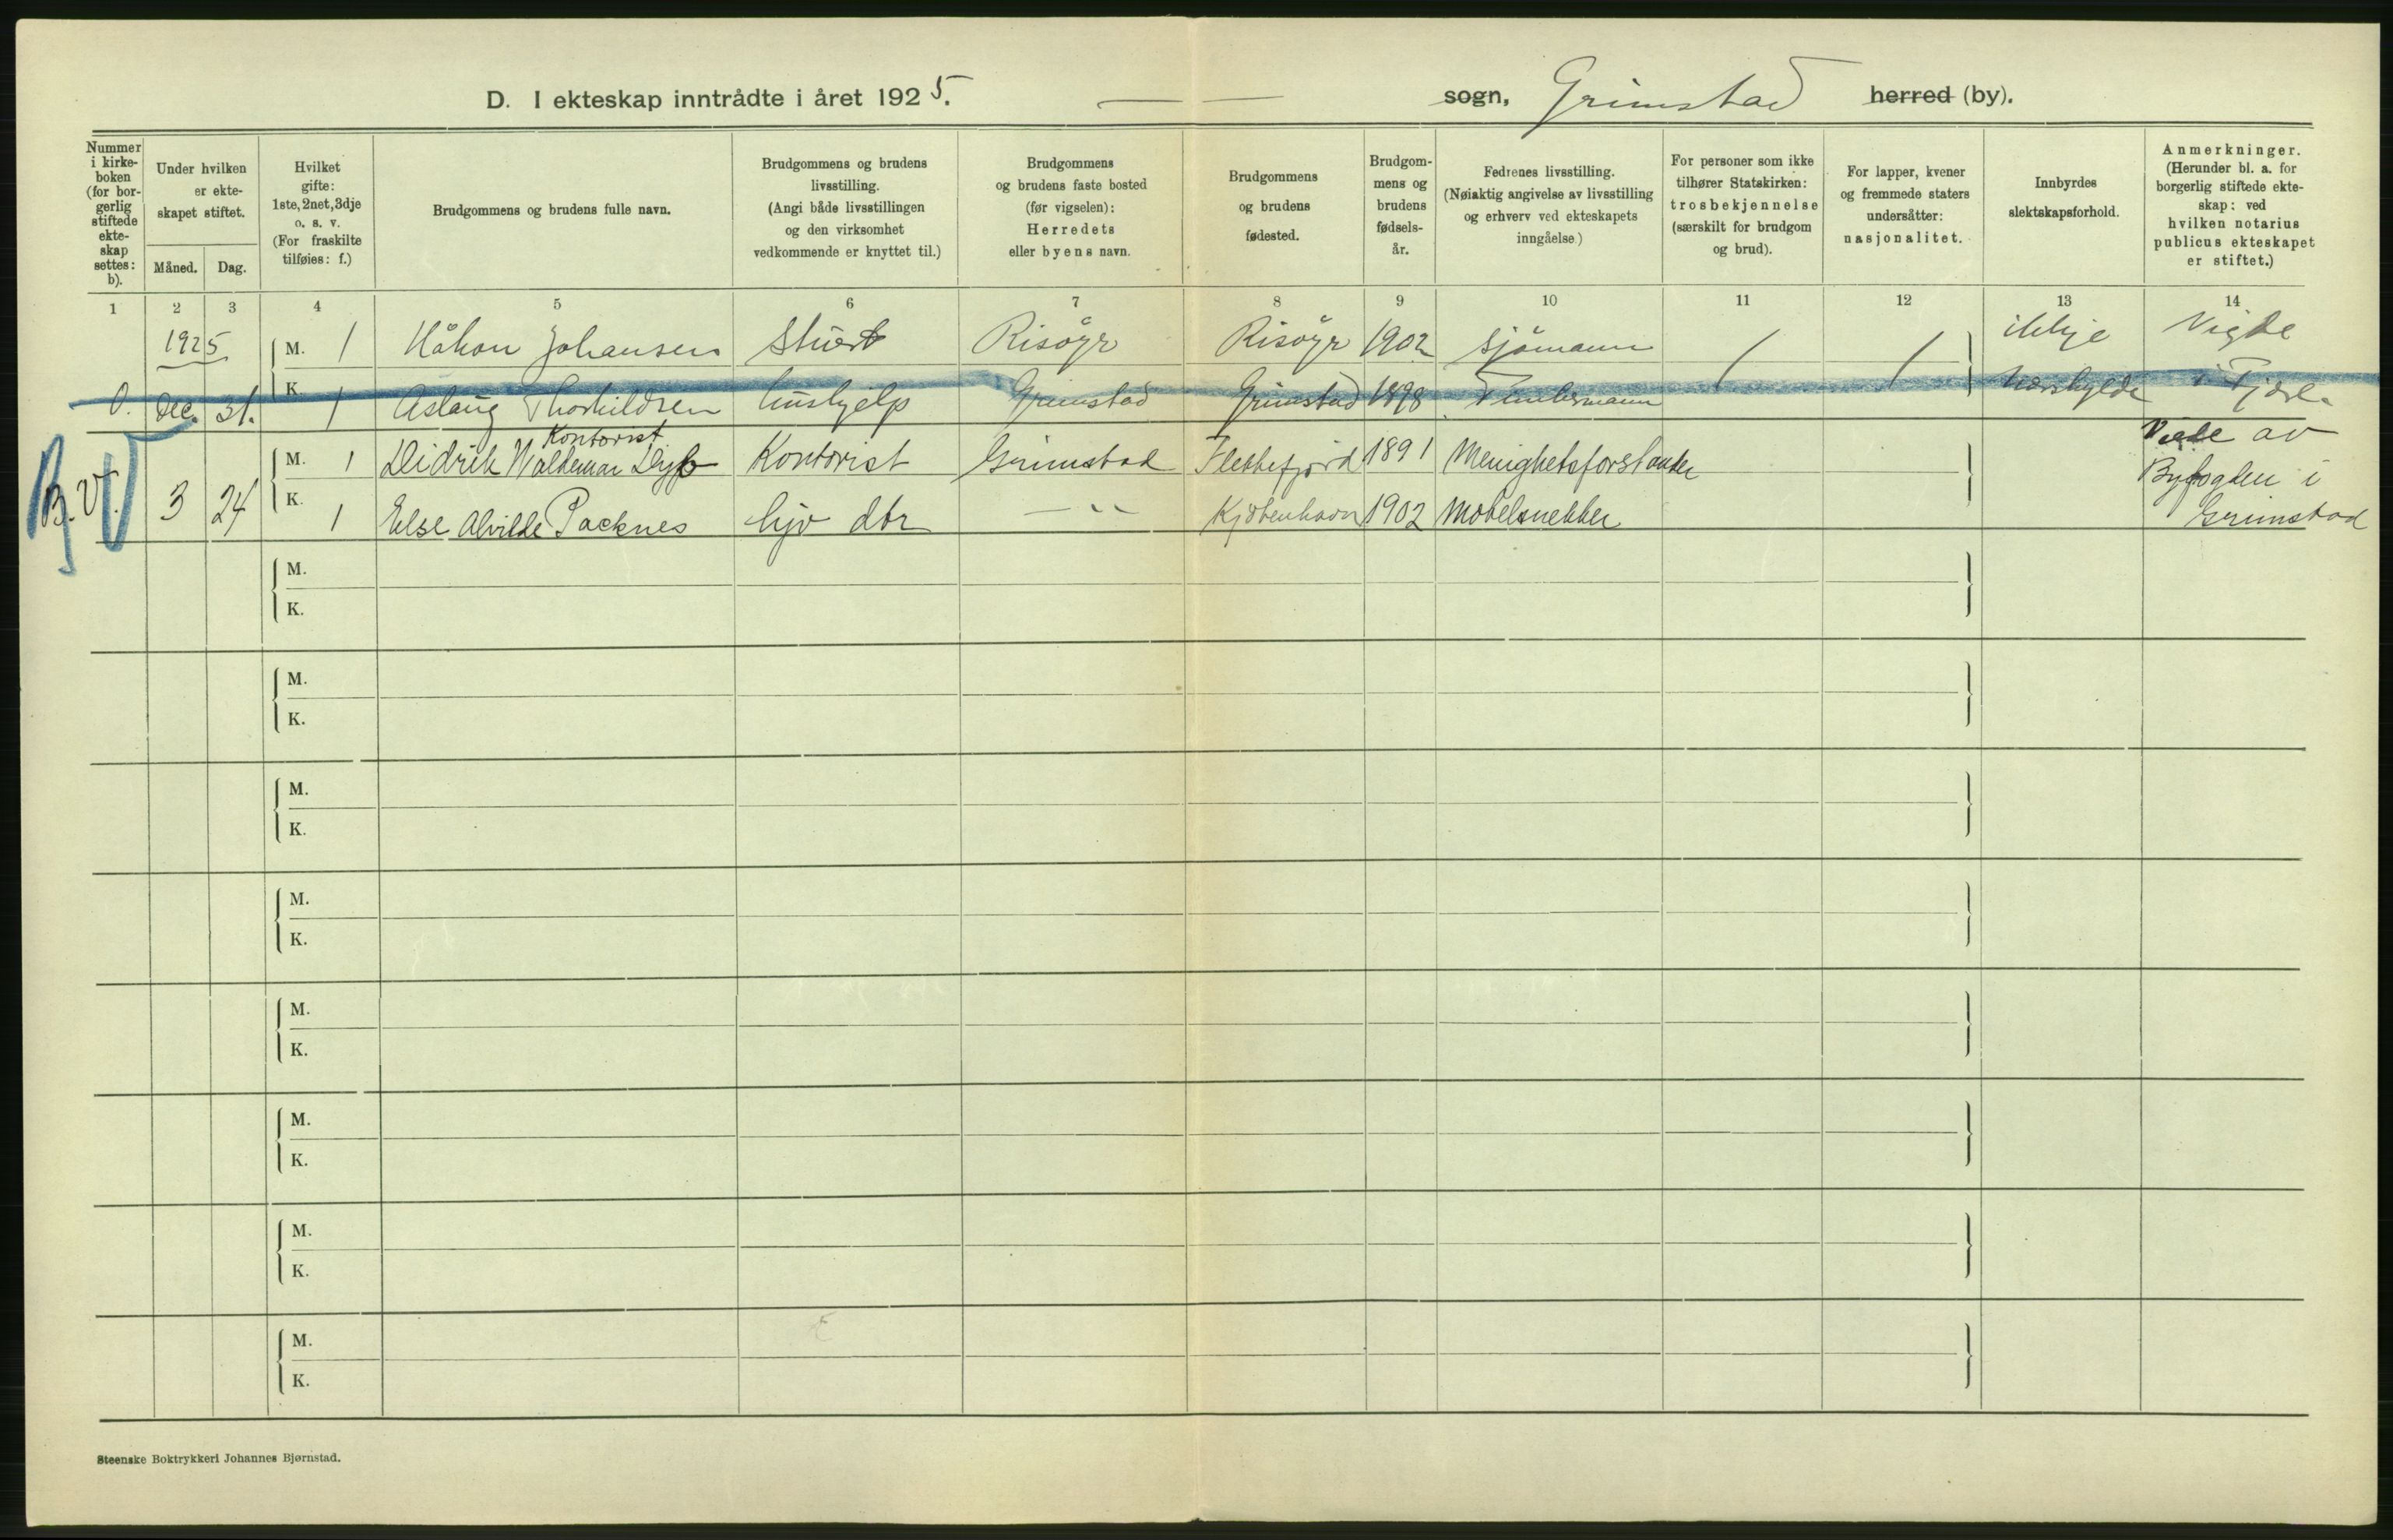 D. I ekteskap inntrådte i året 1925. — — sogn, Grimstad herred (by).
Nummer i kirkeboken (for borgerlig stiftede ekteskap settes: b).
Under hvilken er ekteskapet stiftet.
Måned.
Dag.
Hvilket gifte: 1ste, 2net, 3dje o. s. v. (For fraskilte tilføies: f.)
Brudgommens og brudens fulle navn.
Brudgommens og brudens livsstilling. (Angi både livsstillingen og den virksomhet vedkommende er knyttet til.)
Brudgommens og brudens faste bosted (før vigselen): Herredets eller byens navn.
Brudgommens og brudens fødested.
Brudgommens og brudens fødselsår.
Fedrenes livsstilling. (Nøiaktig angivelse av livsstilling og erhverv ved ekteskapets inngåelse.)
For personer som ikke tilhører Statskirken: trosbekjennelse (særskilt for brudgom og brud).
For lapper, kvener og fremmede staters undersåtter: nasjonalitet.
Innbyrdes slektskapsforhold.
Anmerkninger. (Herunder bl. a. for borgerlig stiftede ekteskap: ved hvilken notarius publicus ekteskapet er stiftet.)
1 2 3 4 5 6 7 8 9 10 11 12 13 14
1925 M. 1 Håkon Johansen Risöyr Risöyr 1902 sjömann / / ikkje Vigde
0. Dec. 31. K. 1 Aslaug Thorkildsen hushjelp Grimstad Grimstad 1898 Tømmermann nærskylde i Fjære
Kontorist
M. 1 Didrik Waldemar Kontorist Grimstad Flekkefjord 1891 Menighetsforstander Viede av
B.V. 3 24 K. 1 Else Alvilde Packnes hjv dtr — " — Kjøbenhavn 1902 Møbelsnekker Byfogden i
Grimstad
M.
K.
M.
K.
M.
K.
M.
K.
M.
K.
M.
K.
M.
K.
M.
K.
Steenske Boktrykkeri Johannes Bjørnstad.